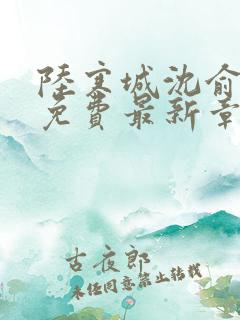 陸寒城沈俞
免費最新章
古夜郎
未经同意禁止转载